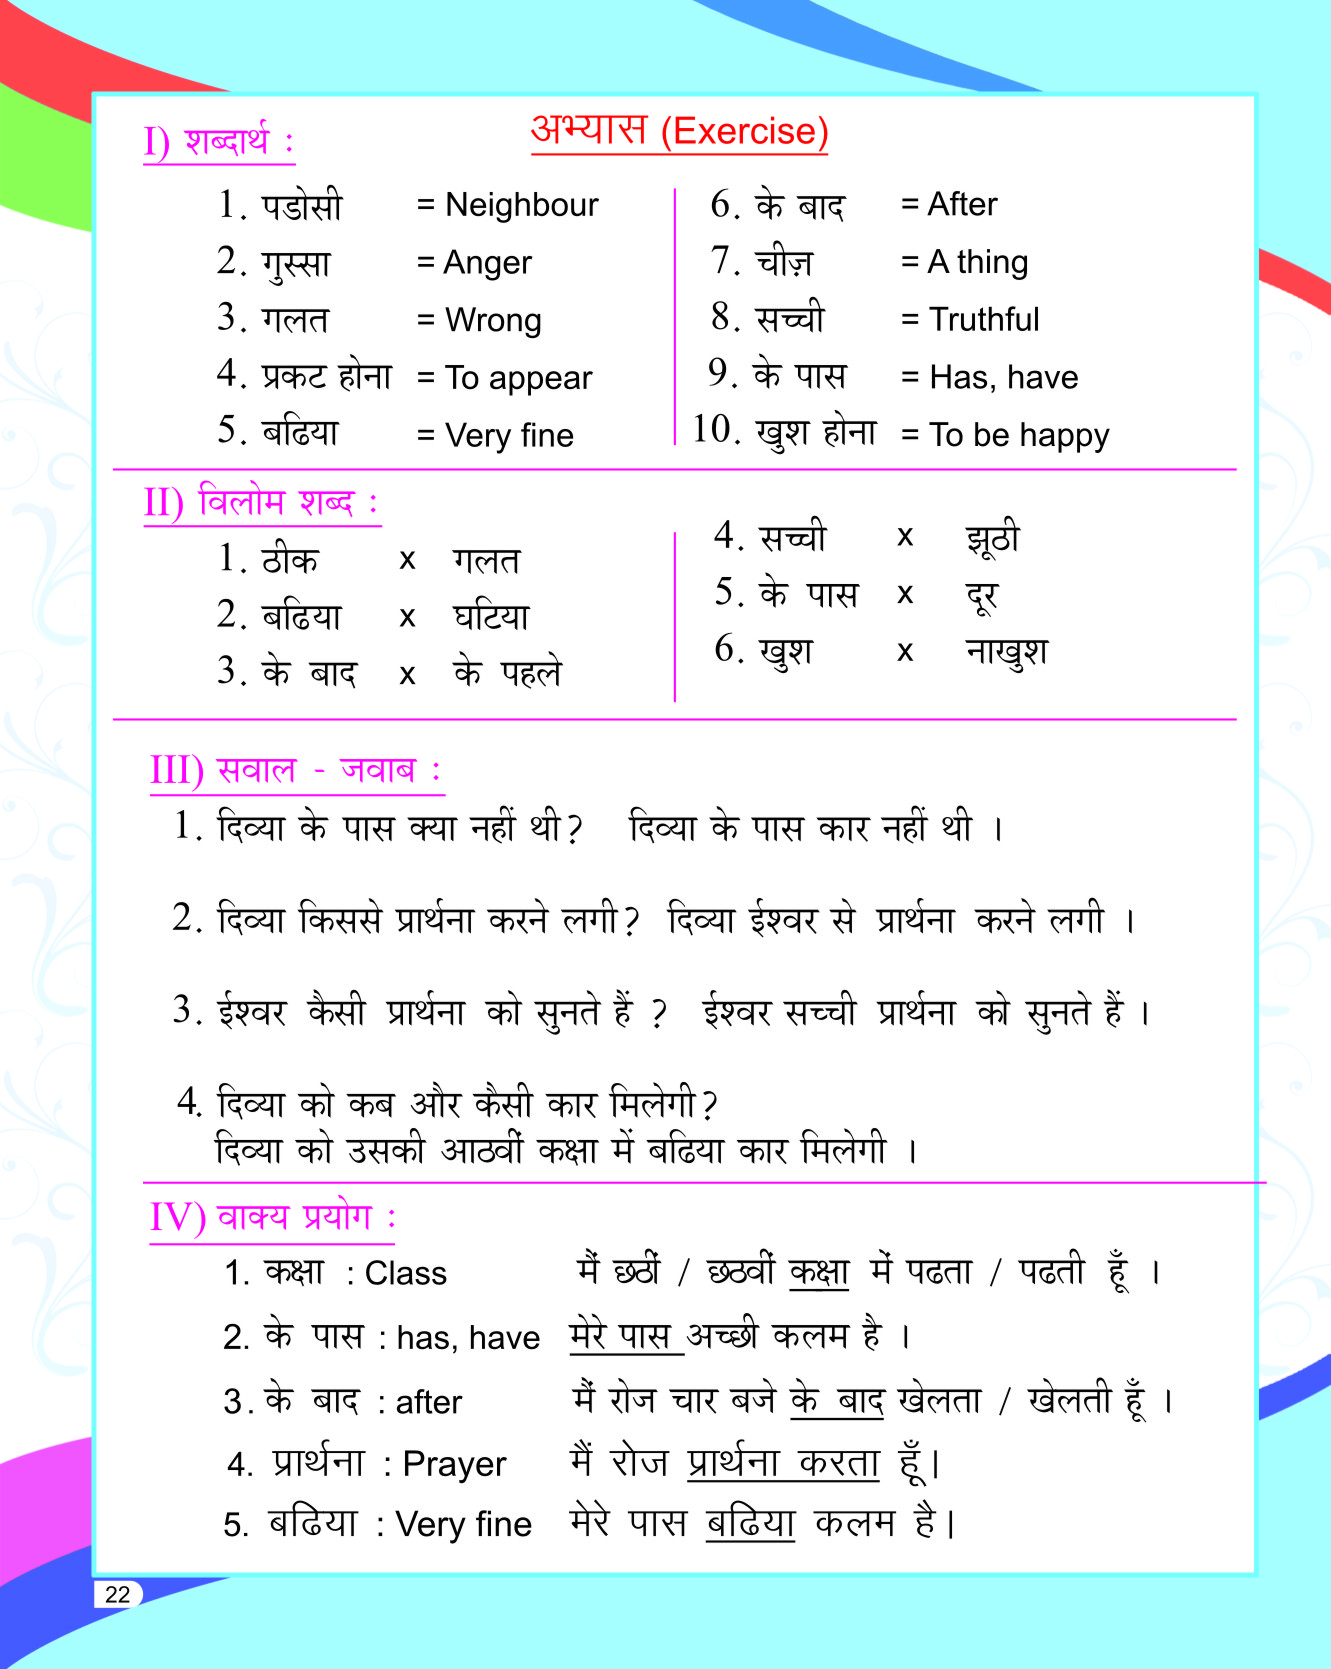 अभ्यास (Exercise)
I) शब्दार्थ :
1. पडोसी = Neighbour
2. गुस्सा = Anger
3. गलत = Wrong
4. प्रकट होना = To appear
5. बढिया = Very fine
6. के बाद = After
7. चीज़ = A thing
8. सच्ची = Truthful
9. के पास = Has, have
10. खुश होना = To be happy
II) विलोम शब्द :
1. ठीक x गलत
2. बढिया x घटिया
3. के बाद x के पहले
4. सच्ची x झूठी
5. के पास x दूर
6. खुश x नाखुश
III) सवाल - जवाब :
1. दिव्या के पास क्या नहीं थी? दिव्या के पास कार नहीं थी ।
2. दिव्या किससे प्रार्थना करने लगी? दिव्या ईश्वर से प्रार्थना करने लगी ।
3. ईश्वर कैसी प्रार्थना को सुनते हैं ? ईश्वर सच्ची प्रार्थना को सुनते हैं ।
4. दिव्या को कब और कैसी कार मिलेगी?
दिव्या को उसकी आठवीं कक्षा में बढिया कार मिलेगी ।
IV) वाक्य प्रयोग :
1. कक्षा : Class मैं छठीं / छठवीं कक्षा में पढता / पढती हूँ ।
2. के पास : has, have मेरे पास अच्छी कलम है ।
3. के बाद : after मैं रोज चार बजे के बाद खेलता / खेलती हूँ ।
4. प्रार्थना : Prayer मैं रोज प्रार्थना करता हूँ।
5. बढिया : Very fine मेरे पास बढिया कलम है।
22